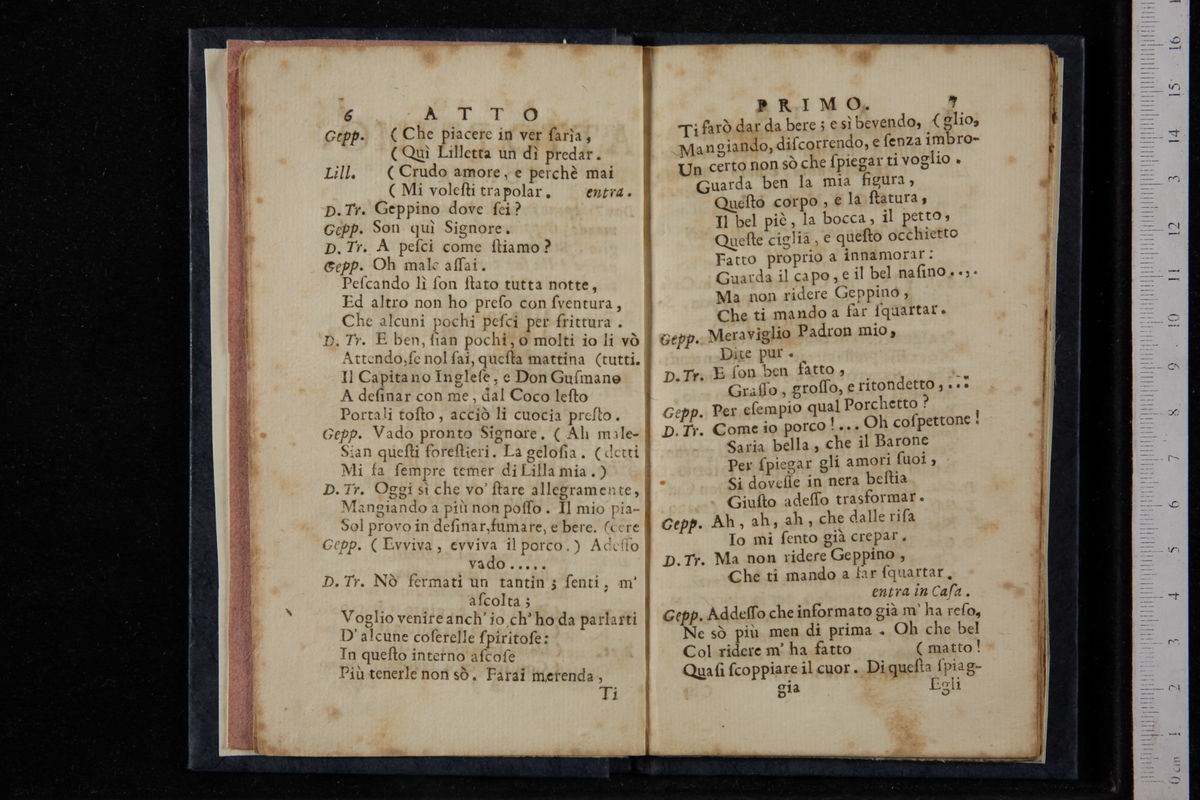 6 ATTO
Gepp. (Che piacere in ver ſarìa,
(Quì Lilletta un dì predar.
Lill. (Crudo amore, e perchè mai
(Mi voleſti trapolar. entra.
D. Tr. Geppino dove ſei?
Gepp. Son quì Signore.
D. Tr. A peſci come ſtiamo?
Gepp. Oh male aſſai.
Peſcando lì ſon ſtato tutta notte,
Ed altro non ho preſo con ſventura,
Che alcuni pochi peſci per frittura.
D. Tr. E ben, ſian pochi, o molti io li vò
Attendo, ſe nol ſai, queſta mattina (tutti.
Il Capitano Ingleſe, e Don Guſmano
A deſinar con me, dal Coco leſto
Portali toſto, acciò li cuocia preſto.
Gepp. Vado pronto Signore. (Ah male-
Sian queſti foreſtieri. La geloſia. (detti
Mi fa ſempre temer di Lilla mia.)
D. Tr. Oggi sì che vo' ſtare allegramente,
Mangiando a più non poſſo. Il mio pia-
Sol provo in deſinar, fumare, e bere. (cere
Gepp. (Evviva, evviva il porco.) Adeſſo
vado.....
D. Tr. Nò fermati un tantin; ſenti, m'
aſcolta;
Voglio venire anch' io, ch' ho da parlarti
D' alcune coſerelle ſpiritoſe:
In queſto interno aſcoſe
Più tenerle non sò. Farai merenda,
Ti
PRIMO. 7
Ti farò dar da bere; e sì bevendo, (glio,
Mangiando, diſcorrendo, e ſenza imbro-
Un certo non sò che ſpiegar ti voglio.
Guarda ben la mia figura,
Queſto corpo, e la ſtatura,
Il bel piè, la bocca, il petto,
Queſte ciglia, e queſto occhietto
Fatto proprio a innamorar:
Guarda il capo, e il bel naſino....
Ma non ridere Geppino,
Che ti mando a far ſquartar.
Gepp. Meraviglio Padron mio,
Dite pur.
D. Tr. E ſon ben fatto,
Graſſo, groſſo, e ritondetto,...
Gepp. Per eſempio qual Porchetto?
D. Tr. Come io porco!... Oh coſpettone!
Saria bella, che il Barone
Per ſpiegar gli amori ſuoi,
Si doveſſe in nera beſtia
Giuſto adeſſo trasformar.
Gepp. Ah, ah, ah, che dalle riſa
Io mi ſento già crepar.
D. Tr. Ma non ridere Geppino,
Che ti mando a far ſquartar.
entra in Caſa.
Gepp. Addeſſo che informato già m' ha reſo,
Ne sò più men di prima. Oh che bel
Col ridere m' ha fatto (matto!
Quaſi ſcoppiare il cuor. Di queſta ſpiag-
gia Egli